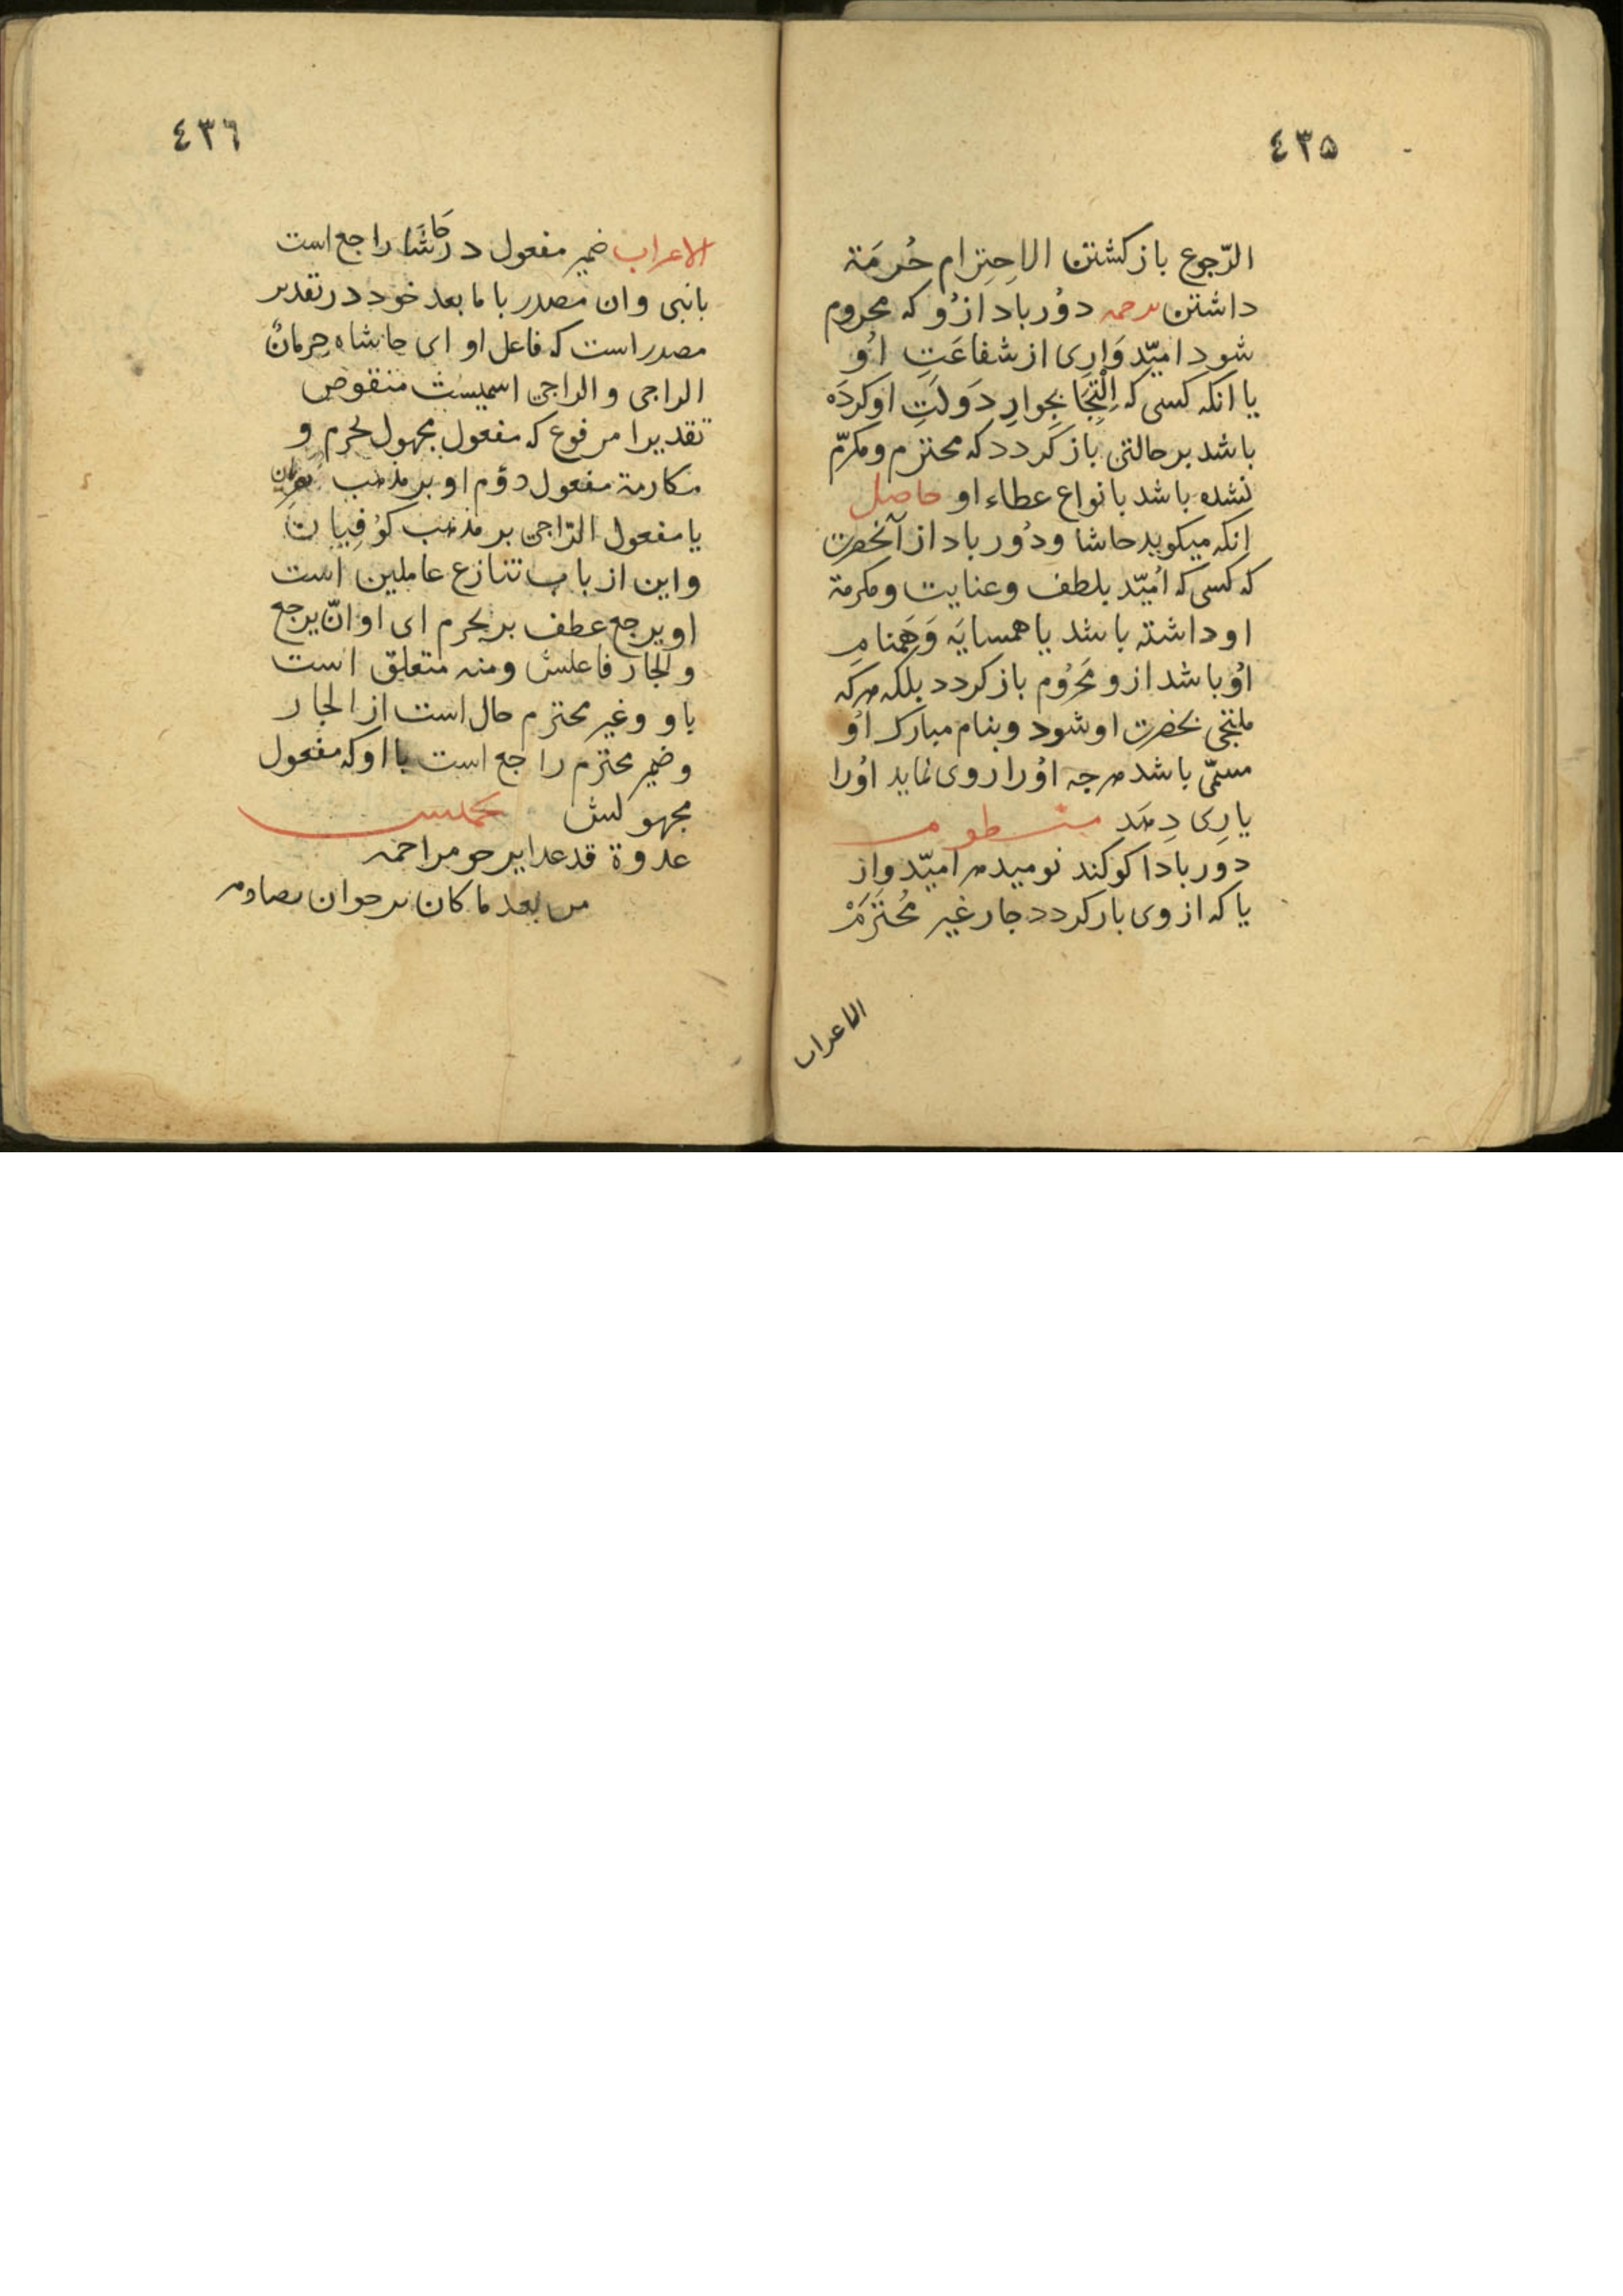 ٤٣٥
الرّجوع باز كشتن الاحِتِرام حُرمَة
داشتن ترجمه دوُر باد ازوُ كه محروم
شود اميّد وَارِى از شفاعَتِ اوُ
يا انكه كسى كه اِلْتِجَا بِجوارِ دَولَتِ او كردَه
باشد بر حالتى باز كردد كه محترم ومكرّم
نشده باشد با نواع عطاء او حاصل
انكه ميكويد حاشا ودُور باد از آنحضرت
كه كسى كه اُميّد بلطف وعنايت ومكرمة
او داشته باشد يا همسايَه وَهَمنامِ
اوُ باشد ازو مَحرُوم باز كردد بلكه هركه
ملتجى بحضرت او شود وبنام مبارك اوُ
مسمّى باشد هرجه اوُرا روى نمايد اوُرا
يارِى دِهَدِ منظوم
دور بادا كو كند نوميد هر اميّدواز
يا كه از وى بار كردد جار غير مُحتَرَمْ
الاعراب
٤٣٦
الاعراب ضمير مفعول در حَاشَا راجع است
بانبى وان مصدر با ما بعد خود در تقدير
مصدر است كه فاعل او اى حاشاه حِرمانُ
الراجى والراجى اسميست منقوص
تقديرا مرفوع كه مفعول مجهول يحرم و
مكارمة مفعول دوُم او بر مذهب
يا مفعول الرّاجى بر مذهب كوُفِيان
واين از باب تنازع عاملين است
او يرجع عطف بر يحرم اى او انّ يرجع
والجار فاعلش ومنه متعلق است
باو وغير محترم حال است از الجار
وضمير محترم راجع است با او كه مفعول
مجهولش تخميس
عدوة قد غدا يرجو مراحمه
من بعد ما كان يرجوان يصادمه